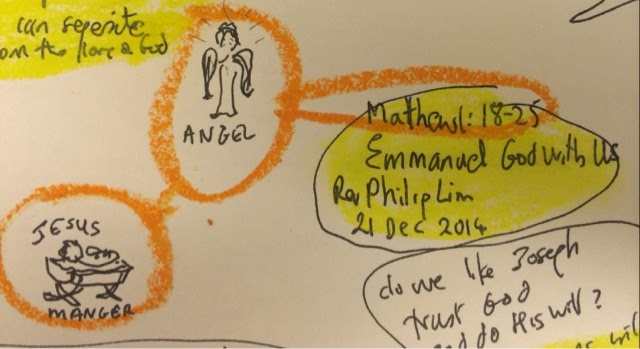 can seperite
the love a God
ANGEL
Mathew 1: 18-25
Emmanuel God with Us
Rev Philip Lim
21 Dec 2014
JESUS
MANGER
do we like Joseph
trust God
and do His will?
will